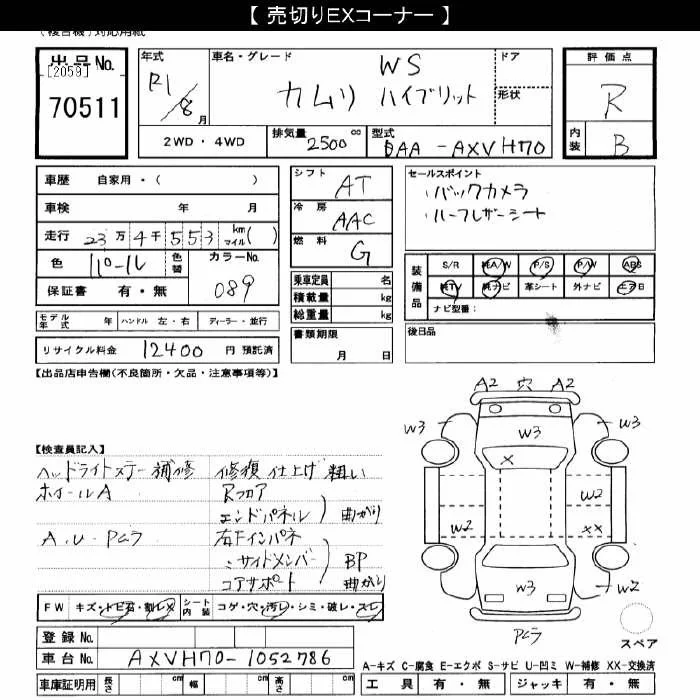 【 売切りEXコーナー 】
(複合機)対応用紙
出品No.
[2059]
70511
年式
R1/8月
車名・グレード
WS
カムリ ハイブリット
ドア
形状
評価点
R
内装
B
2WD・4WD
排気量
2500cc
型式
DAA-AXVH70
車歴 自家用・( )
車検 年 月
走行 23万4千553 km マイル( )
色 パール 色替 カラーNo. 089
保証書 有・無
モデル年式 年 ハンドル 左・右 ディーラー・並行
リサイクル料金 12400 円 預託済
シフト AT
冷房 AAC
燃料 G
乗車定員 名
積載量 kg
総重量 kg
書類期限
月 日
セールスポイント
・バックカメラ
・ハーフレザーシート
装備品
S/R 純A/W P/S P/W ABS
純TV 純ナビ 革シート 外ナビ エアB
ナビ型番:
後日品
【出品店申告欄(不良箇所・欠品・注意事項等)】
【検査員記入】
ヘッドライトステー補修 修復仕上げ粗い
ホイールA Rフロア
エンドパネル 曲がり
A.U.Pムラ 右Fインパネ
〃サイドメンバー BP
コアサポート 曲がり
FW キズ・トビ石・割レX シート内装 コゲ・穴・汚レ・シミ・破レ・スレ
登録No.
車台No. AXVH70-1052786
車庫証明用 長さ cm 幅 cm 高さ cm
A2 穴 A2
W3 W3 W3
X
W2
W2 XX
W3 W2
Pムラ
スペア
A-キズ C-腐食 E-エクボ S-サビ U-凹ミ W-補修 XX-交換済
工具 有・無 ジャッキ 有・無